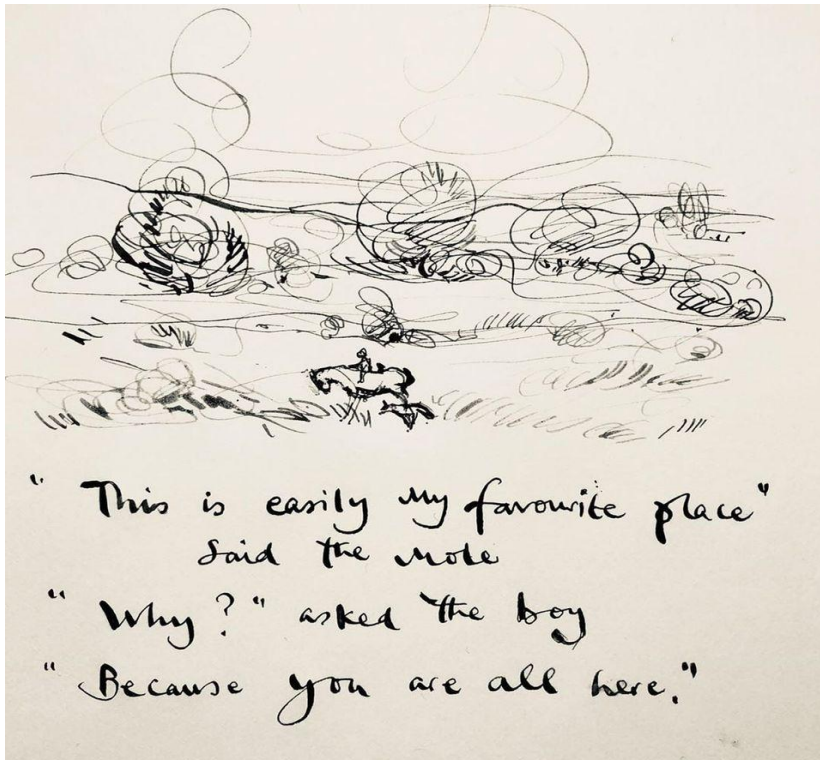 "This is easily my favourite place"
said the mole
"Why?" asked the boy
"Because you are all here."